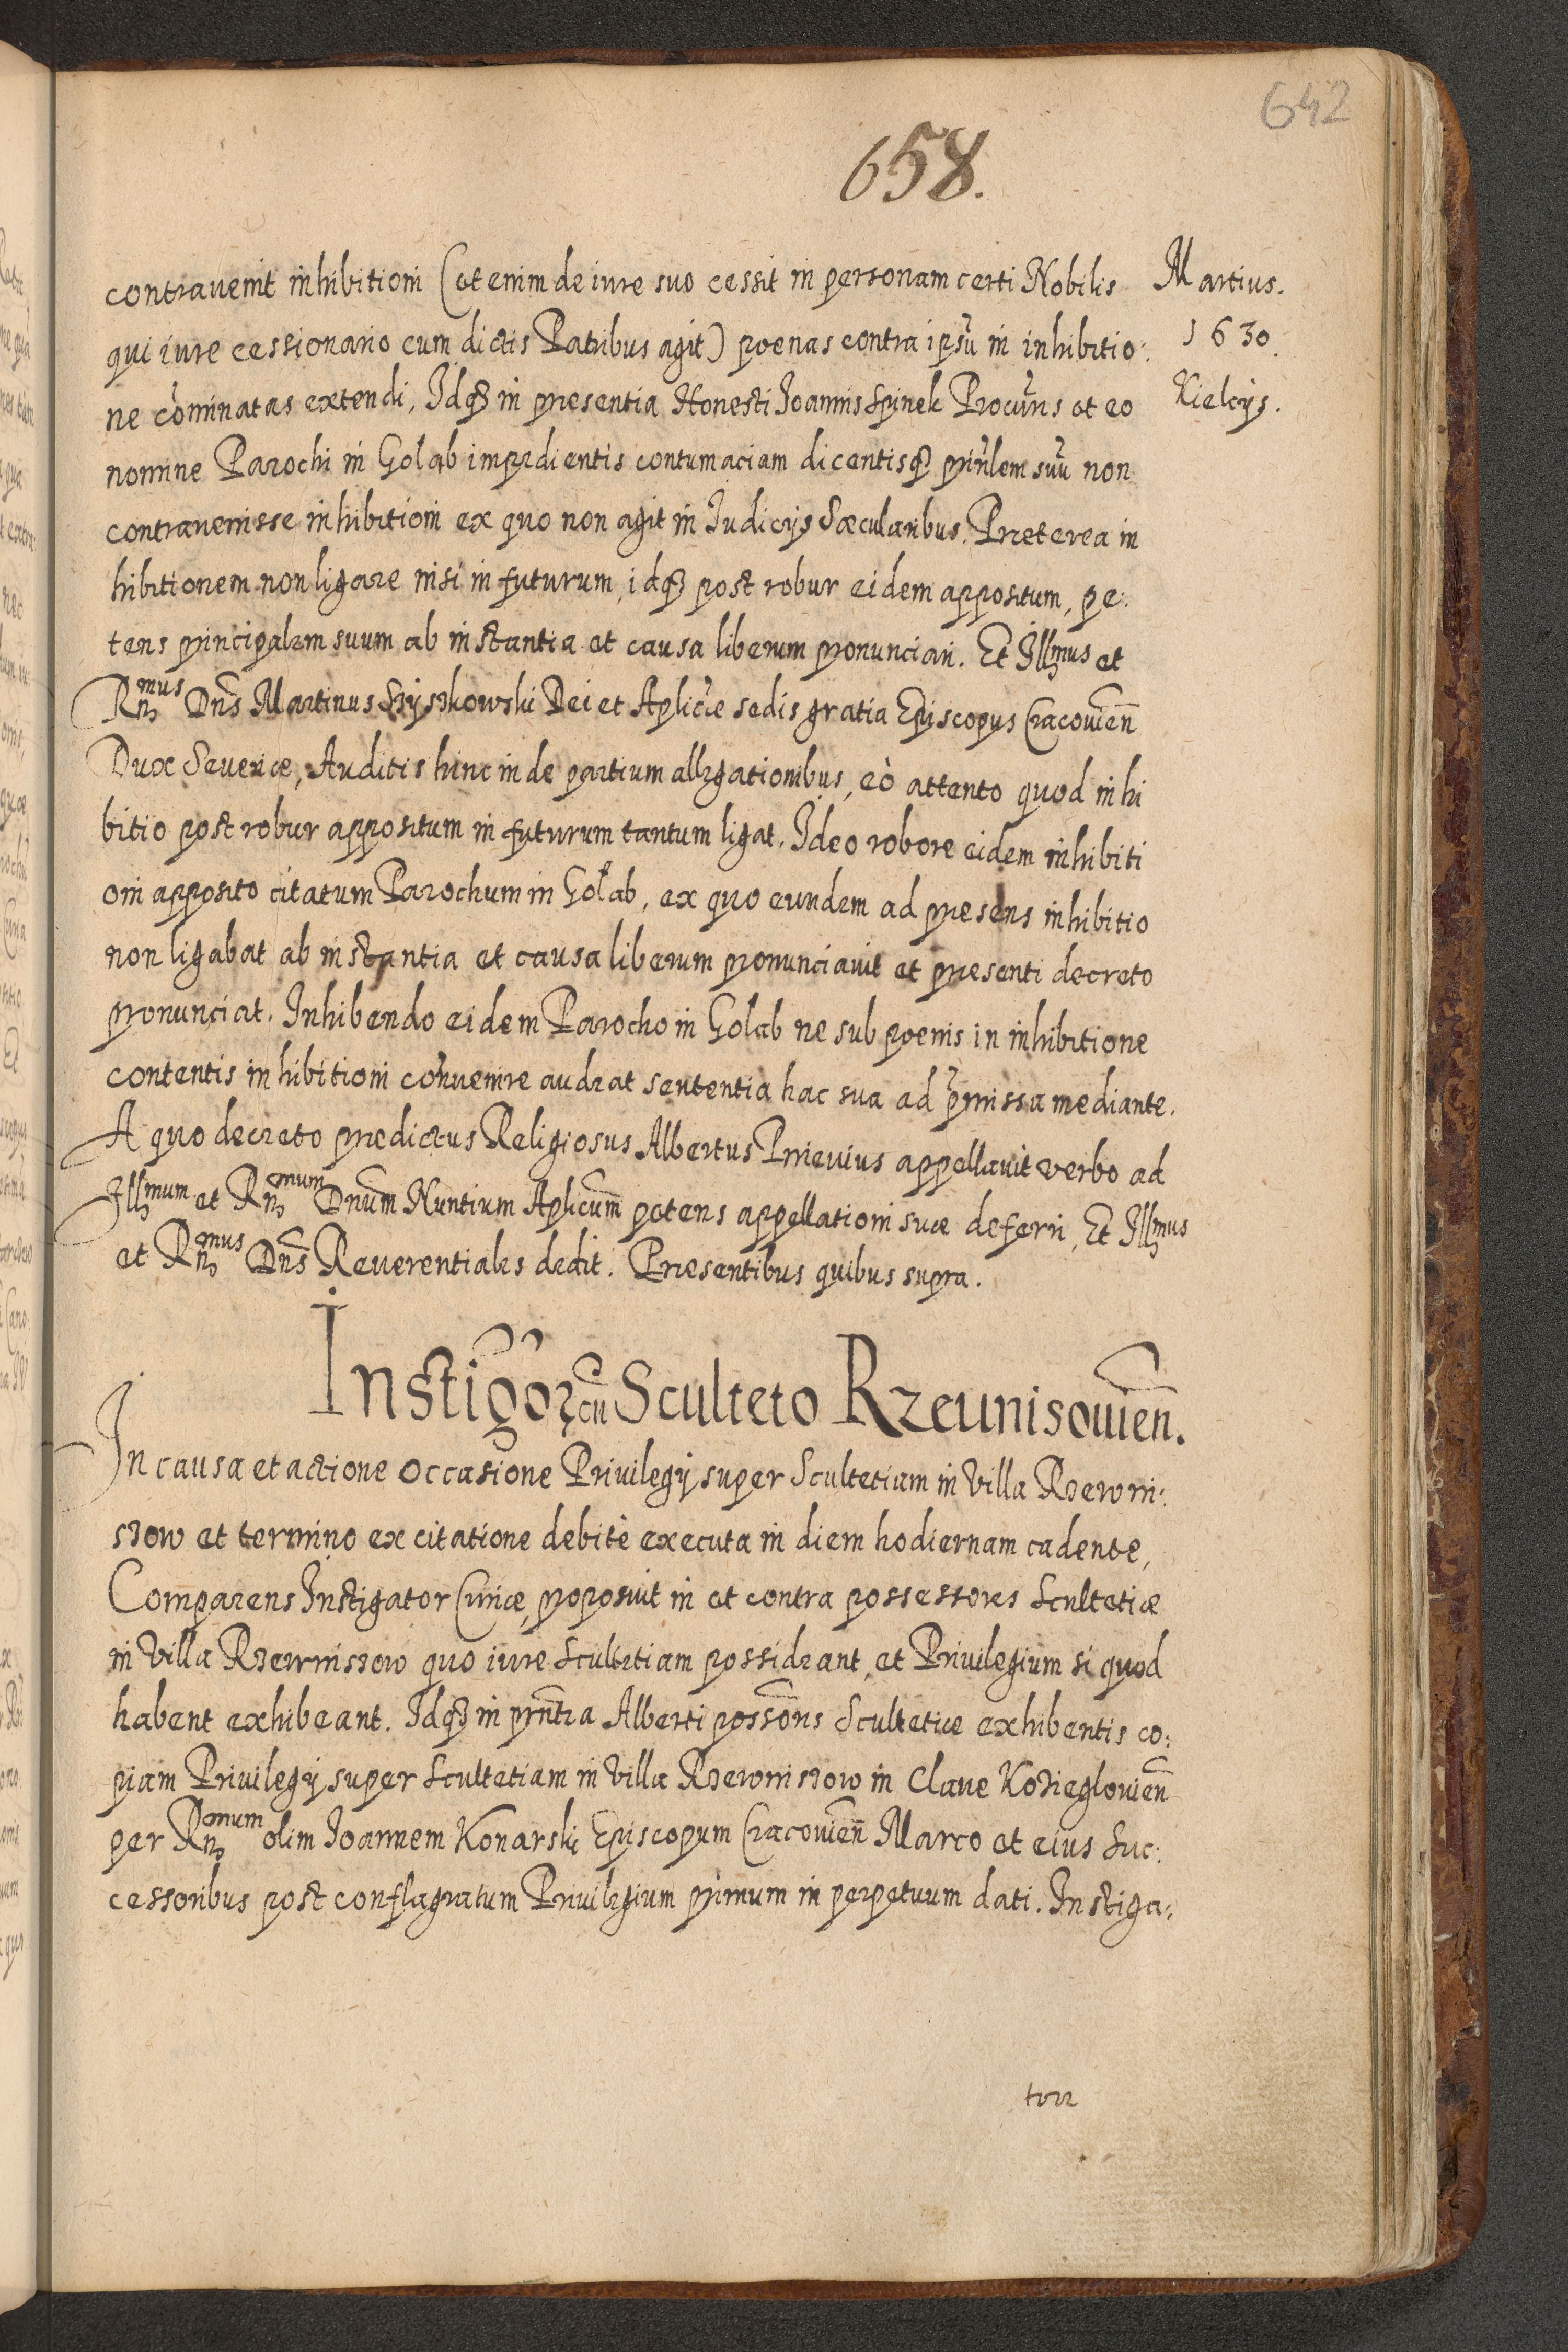 642
658.
Martius.
1630.
Kielcijs.
contrauenit inhibitioni (et enim de iure suo cessit in personam certi Nobilis
qui iure cessionario cum dictis Patribus agit) poenas contra ipsũ in inhibitio:
ne cõminatas extendi, Idq3 in presentia Honesti Joannis Spinek Procũris et eo
nomine Parochi in Golab impedientis contumaciam dicentisq3 prin̄lem suũ non
contrauenisse inhibitioni ex quo non agit in Iudicijs Sæcularibus. Præterea in
hibitionem non ligare nisi in futurum, idq3 post robur eidem appositum, pe:
tens principalem suum ab instantia et causa liberum pronunciari. Et Illmus et
Rn̄dmus Dn̄s Martinus Szyszkowski Dei et Aplicæ sedis gratia Episcopus Cracouien̄
Dux Seueriæ, Auditis hinc inde partium allegationibus, eò attento quod inhi
bitio post robur appositum in futurum tantum ligat. Ideo robore eidem inhibiti
oni apposito citatum Parochum in Gołab, ex quo eundem ad præsens inhibitio
non ligabat ab instantia et causa liberum pronunciauit et præsenti decreto
pronunciat. Inhibendo eidem Parocho in Golab ne sub poenis in inhibitione
contentis inhibitioni cõnuenire audeat sententia hac sua ad p̃missa mediante.
A quo decreto prædictus Religiosus Albertus appellauit verbo ad
Illmum et Rn̄dmum Dnūm Nuntium Aplicum̄ petens appellationi suæ deferri, Et Illmus
et Rn̄dmus Dn̄s Reuerentiales dedit. Præsentibus quibus supra.
Instigor̃ cũ Sculteto Rzeunisouien̄.
In causa et actione occasione Priuilegij super Scultetiam in Villa Rzewni:
szow et termino ex citatione debitè executa in diem hodiernam cadente,
Comparens Instigator Curiæ, proposuit in et contra possessores Scultetiæ
in Villa Rzewniszow quo iure Scultetiam possideant, et Priuilegium si quod
habent exhibeant. Idq3 in pn̄tia Alberti possōris Scultetiæ exhibentis co:
piam Priuilegij super Scultetiam in Villa Rzewniszow in Claue Kozieglouien̄
per Rn̄dmum olim Joannem Konarski Episcopum Cracouien̄ Marco et eius Suc:
cessoribus post conflagratum Priuilegium primum in perpetuum dati. Instiga:
tore